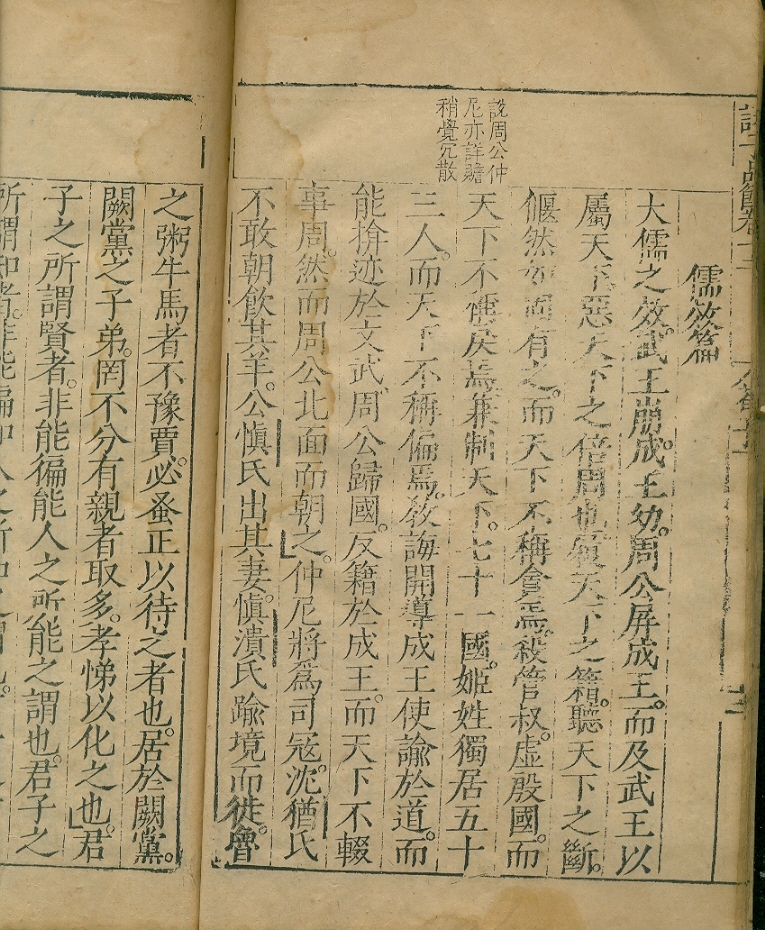 諸子品節卷
儒效篇
說周公仲
尼亦詳贍
稍覺冗散
大儒之效。武王崩。成王幼。周公屏成王。而及武王以
屬天下。惡天下之倍周也。履天下之籍。聽天下之斷。
偃然如固有之。而天下不稱貪焉。殺管叔。虛殷國。而
天下不稱戾焉。兼制天下。七十一國。姬姓獨居五十
三人。而天下不稱偏焉。敎誨開導成王使諭於道。而
能揜迹於文武。周公歸國。反籍於成王。而天下不輟
事周。然而周公北面而朝之。仲尼將爲司寇。沈猶氏
不敢朝飮其羊。公愼氏出其妻。愼潰氏踰境而徙。魯
之粥牛馬者不豫賈。必蚤正以待之者也。居於闕黨。
闕黨之子弟。罔不分有親者取多。孝悌以化之也。君
子之所謂賢者。非能徧能人之所能之謂也。君子之
所謂知者。非能徧知人之所知之謂也。